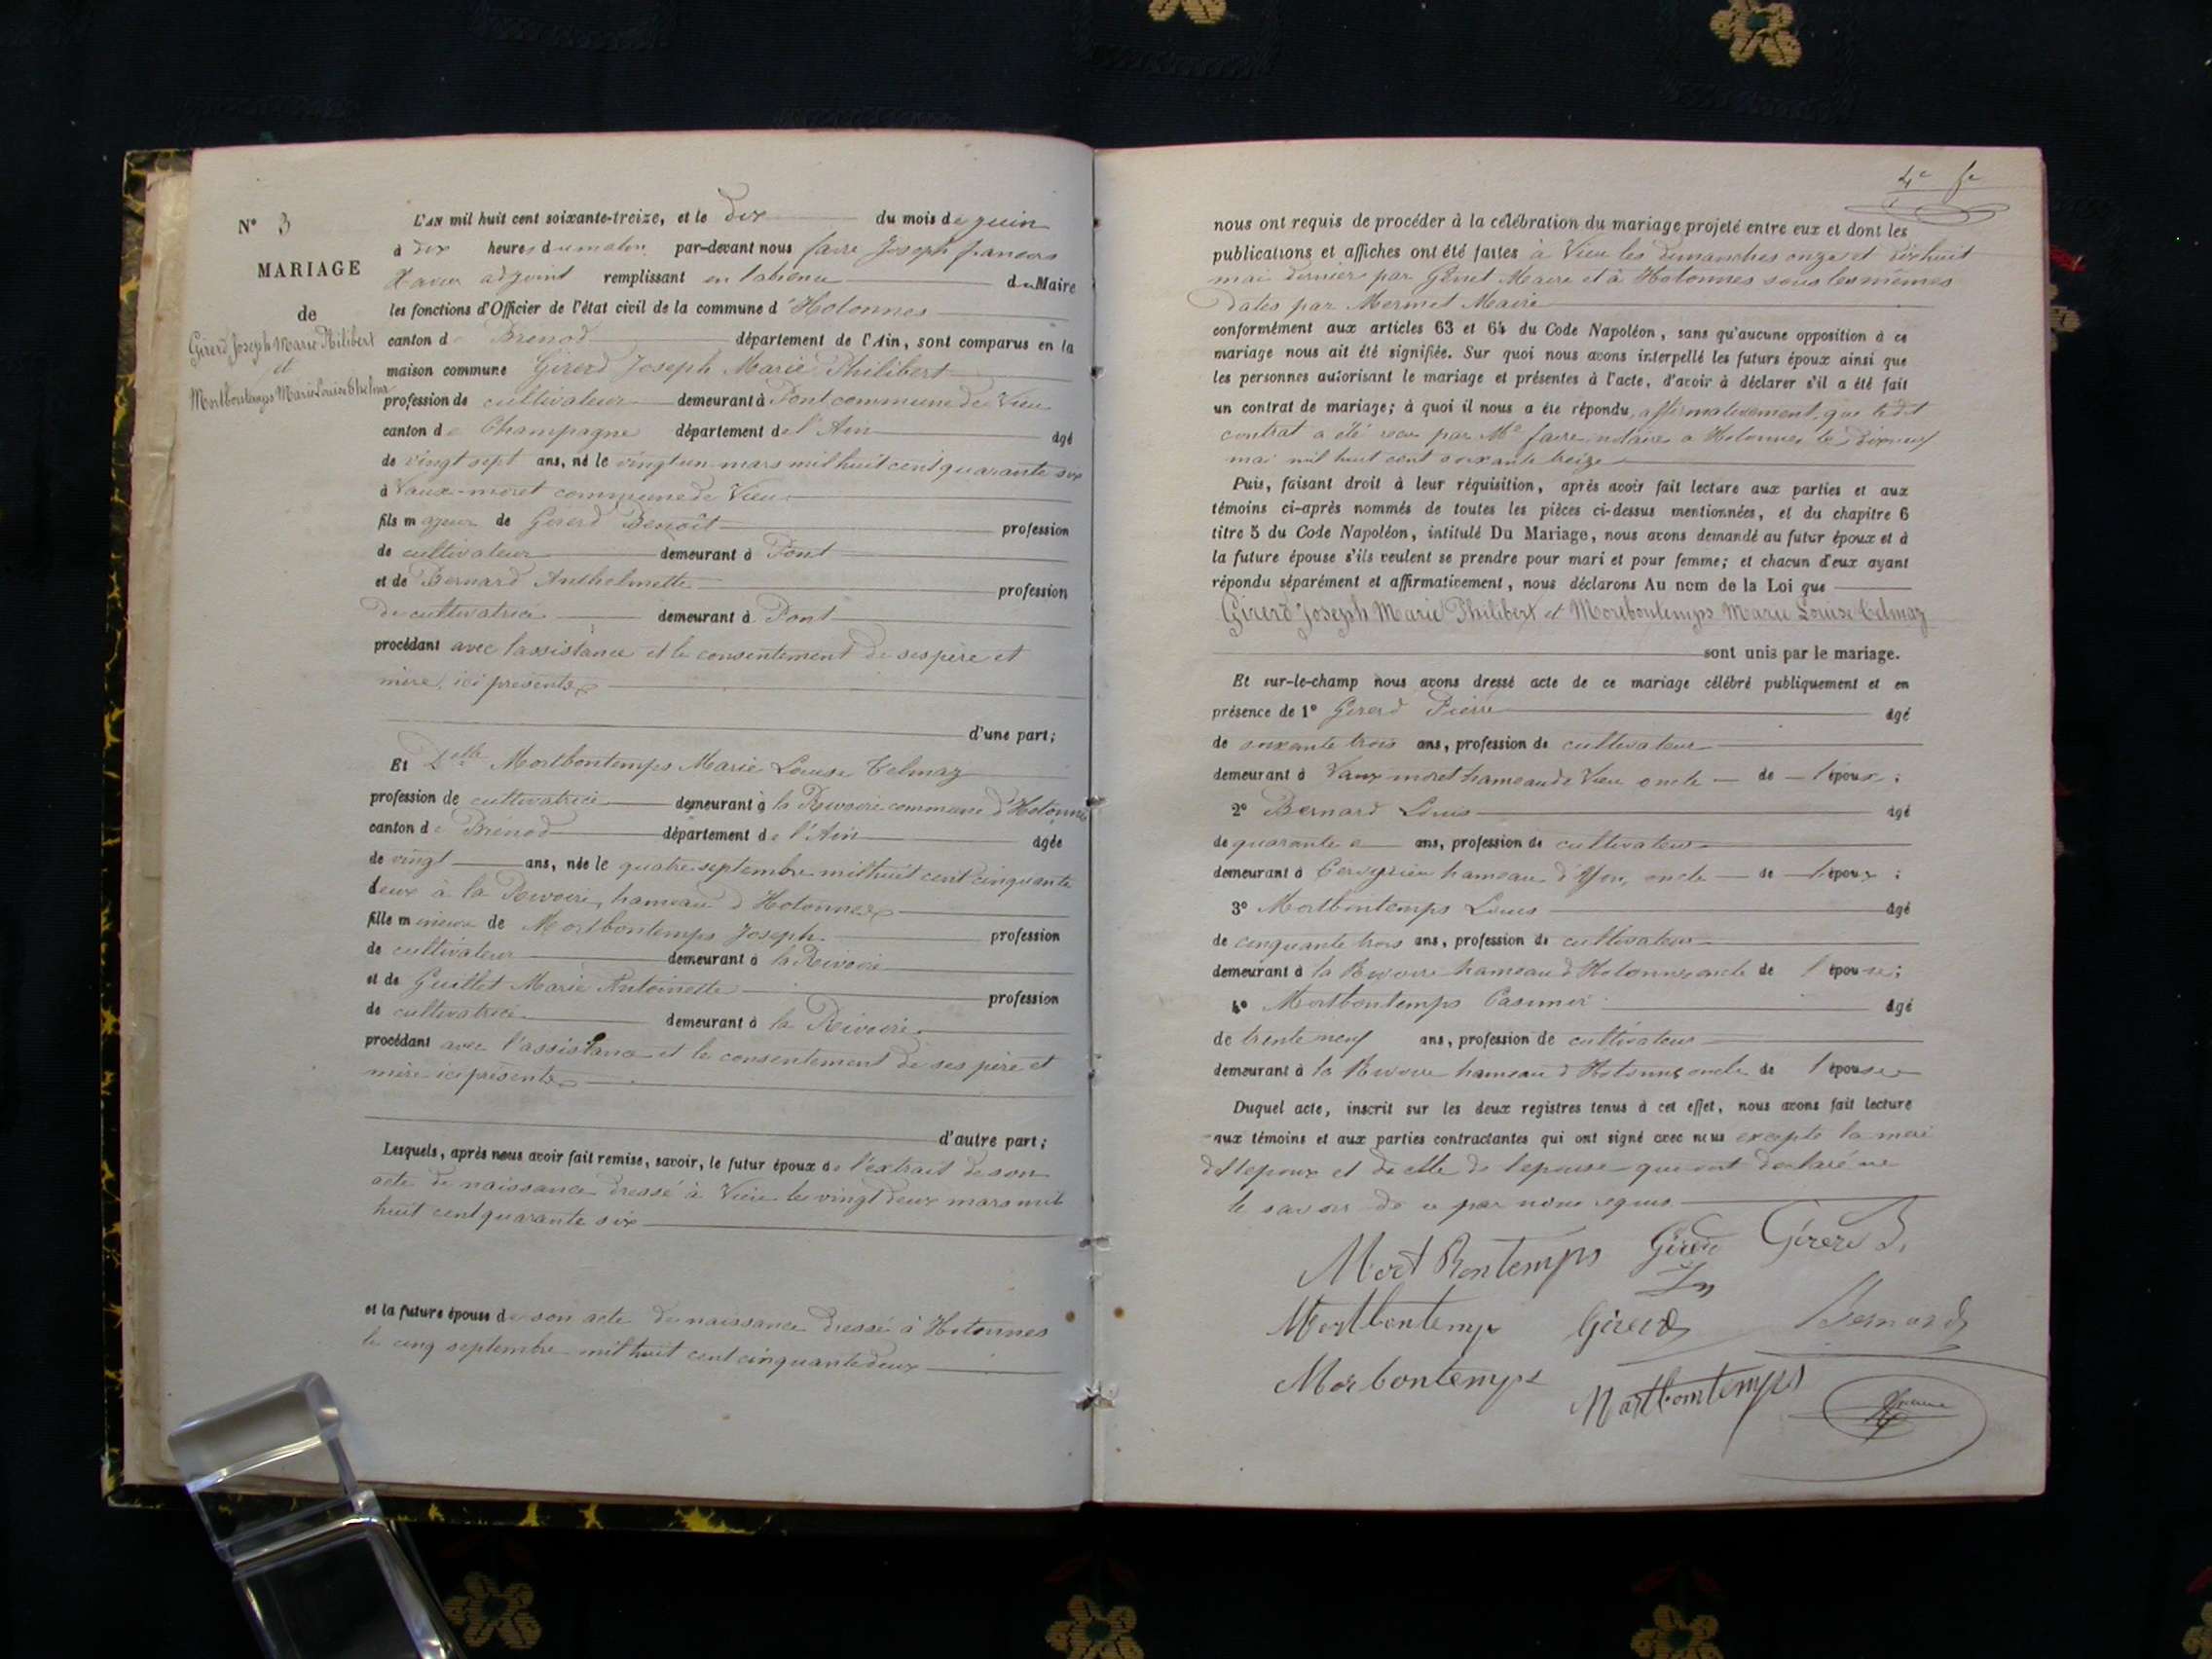 N° 3
MARIAGE
de
Girerd Joseph Marie Philibert
et
Mortbontemps Marie Louise Thelma
L'AN mil huit cent soixante-treize, et le Dix du mois de juin
à dix heures du matin par-devant nous faire Joseph francois
Xavier adjoint remplissant en l'absence du Maire
les fonctions d'Officier de l'état civil de la commune d'Hotonnes
canton de Brénod département de l'Ain, sont comparus en la
maison commune Girerd Joseph Marie Philibert
profession de cultivateur demeurant à Pont commune de Vieu
canton de Champagne département de l'Ain âgé
de vingt sept ans, né le vingt un mars mil huit cent quarante six
à Vaux-moret commune de Vieu
fils majeur de Girerd Benoît profession
de cultivateur demeurant à Pont
et de Bernard Anthelmette profession
de cultivatrice demeurant à Pont
procédant avec l'assistance et le consentement de ses père et
mère, ici présents
d'une part;
Et Delle Mortbontemps Marie Louise Telmaz
profession de cultivatrice demeurant à la Revoire commune d'Hotonnes
canton de Brénod département de l'Ain âgée
de vingt ans, née le quatre septembre mil huit cent cinquante
deux à la Revoire, hameau d'Hotonnes
fille mineure de Mortbontemps Joseph profession
de cultivateur demeurant à la Revoire
et de Guillet Marie Antoinette profession
de cultivatrice demeurant à la Revoire
procédant avec l'assistance et le consentement de ses père et
mère ici présents
d'autre part;
Lesquels, après nous avoir fait remise, savoir, le futur époux de l'extrait de son
acte de naissance dressé à Vieu le vingt deux mars mil
huit cent quarante six
et la future épouse de son acte de naissance dressé à Hotonnes
le cinq septembre mil huit cent cinquante deux
nous ont requis de procéder à la célébration du mariage projeté entre eux et dont les
publications et affiches ont été faites à Vieu les dimanches onze et dix huit
mai dernier par Genet Maire et à Hotonnes sous les mêmes
dates par Mermet Maire
conformément aux articles 63 et 64 du Code Napoléon, sans qu'aucune opposition à ce
mariage nous ait été signifiée. Sur quoi nous avons interpellé les futurs époux ainsi que
les personnes autorisant le mariage et présentes à l'acte, d'avoir à déclarer s'il a été fait
un contrat de mariage; à quoi il nous a été répondu affirmativement, que le dit
contrat a été recu par Me faire notaire a Hotonnes le dix neuf
mai mil huit cent soixante treize
Puis, faisant droit à leur réquisition, après avoir fait lecture aux parties et aux
témoins ci-après nommés de toutes les pièces ci-dessus mentionnées, et du chapitre 6
titre 5 du Code Napoléon, intitulé Du Mariage, nous avons demandé au futur époux et à
la future épouse s'ils veulent se prendre pour mari et pour femme; et chacun d'eux ayant
répondu séparément et affirmativement, nous déclarons Au nom de la Loi que
Girerd Joseph Marie Philibert et Mortbontemps Marie Louise Telmaz
sont unis par le mariage.
Et sur-le-champ nous avons dressé acte de ce mariage célébré publiquement et en
présence de 1° Girerd Pierre âgé
de soixante trois ans, profession de cultivateur
demeurant à Vaux moret hameau de Vieu oncle de l'époux;
2° Bernard Louis âgé
de quarante ans, profession de cultivateur
demeurant à Cerveyrieu hameau d' oncle de l'époux;
3° Mortbontemps Louis âgé
de cinquante trois ans, profession de cultivateur
demeurant à la Revoire hameau d'Hotonnes oncle de l'épouse;
4° Mortbontemps Casimir âgé
de trente neuf ans, profession de cultivateur
demeurant à la Revoire hameau d'Hotonnes oncle de l'épouse
Duquel acte, inscrit sur les deux registres tenus à cet effet, nous avons fait lecture
aux témoins et aux parties contractantes qui ont signé avec nous excepté la mère
de l'époux et de celle de l'épouse qui ont déclaré ne
le savoir de ce par nous requis
Mort Bontemps Girerd Girerd B.
Mortbontemps Girerd Bernard
Morbontemps Mortbontemps